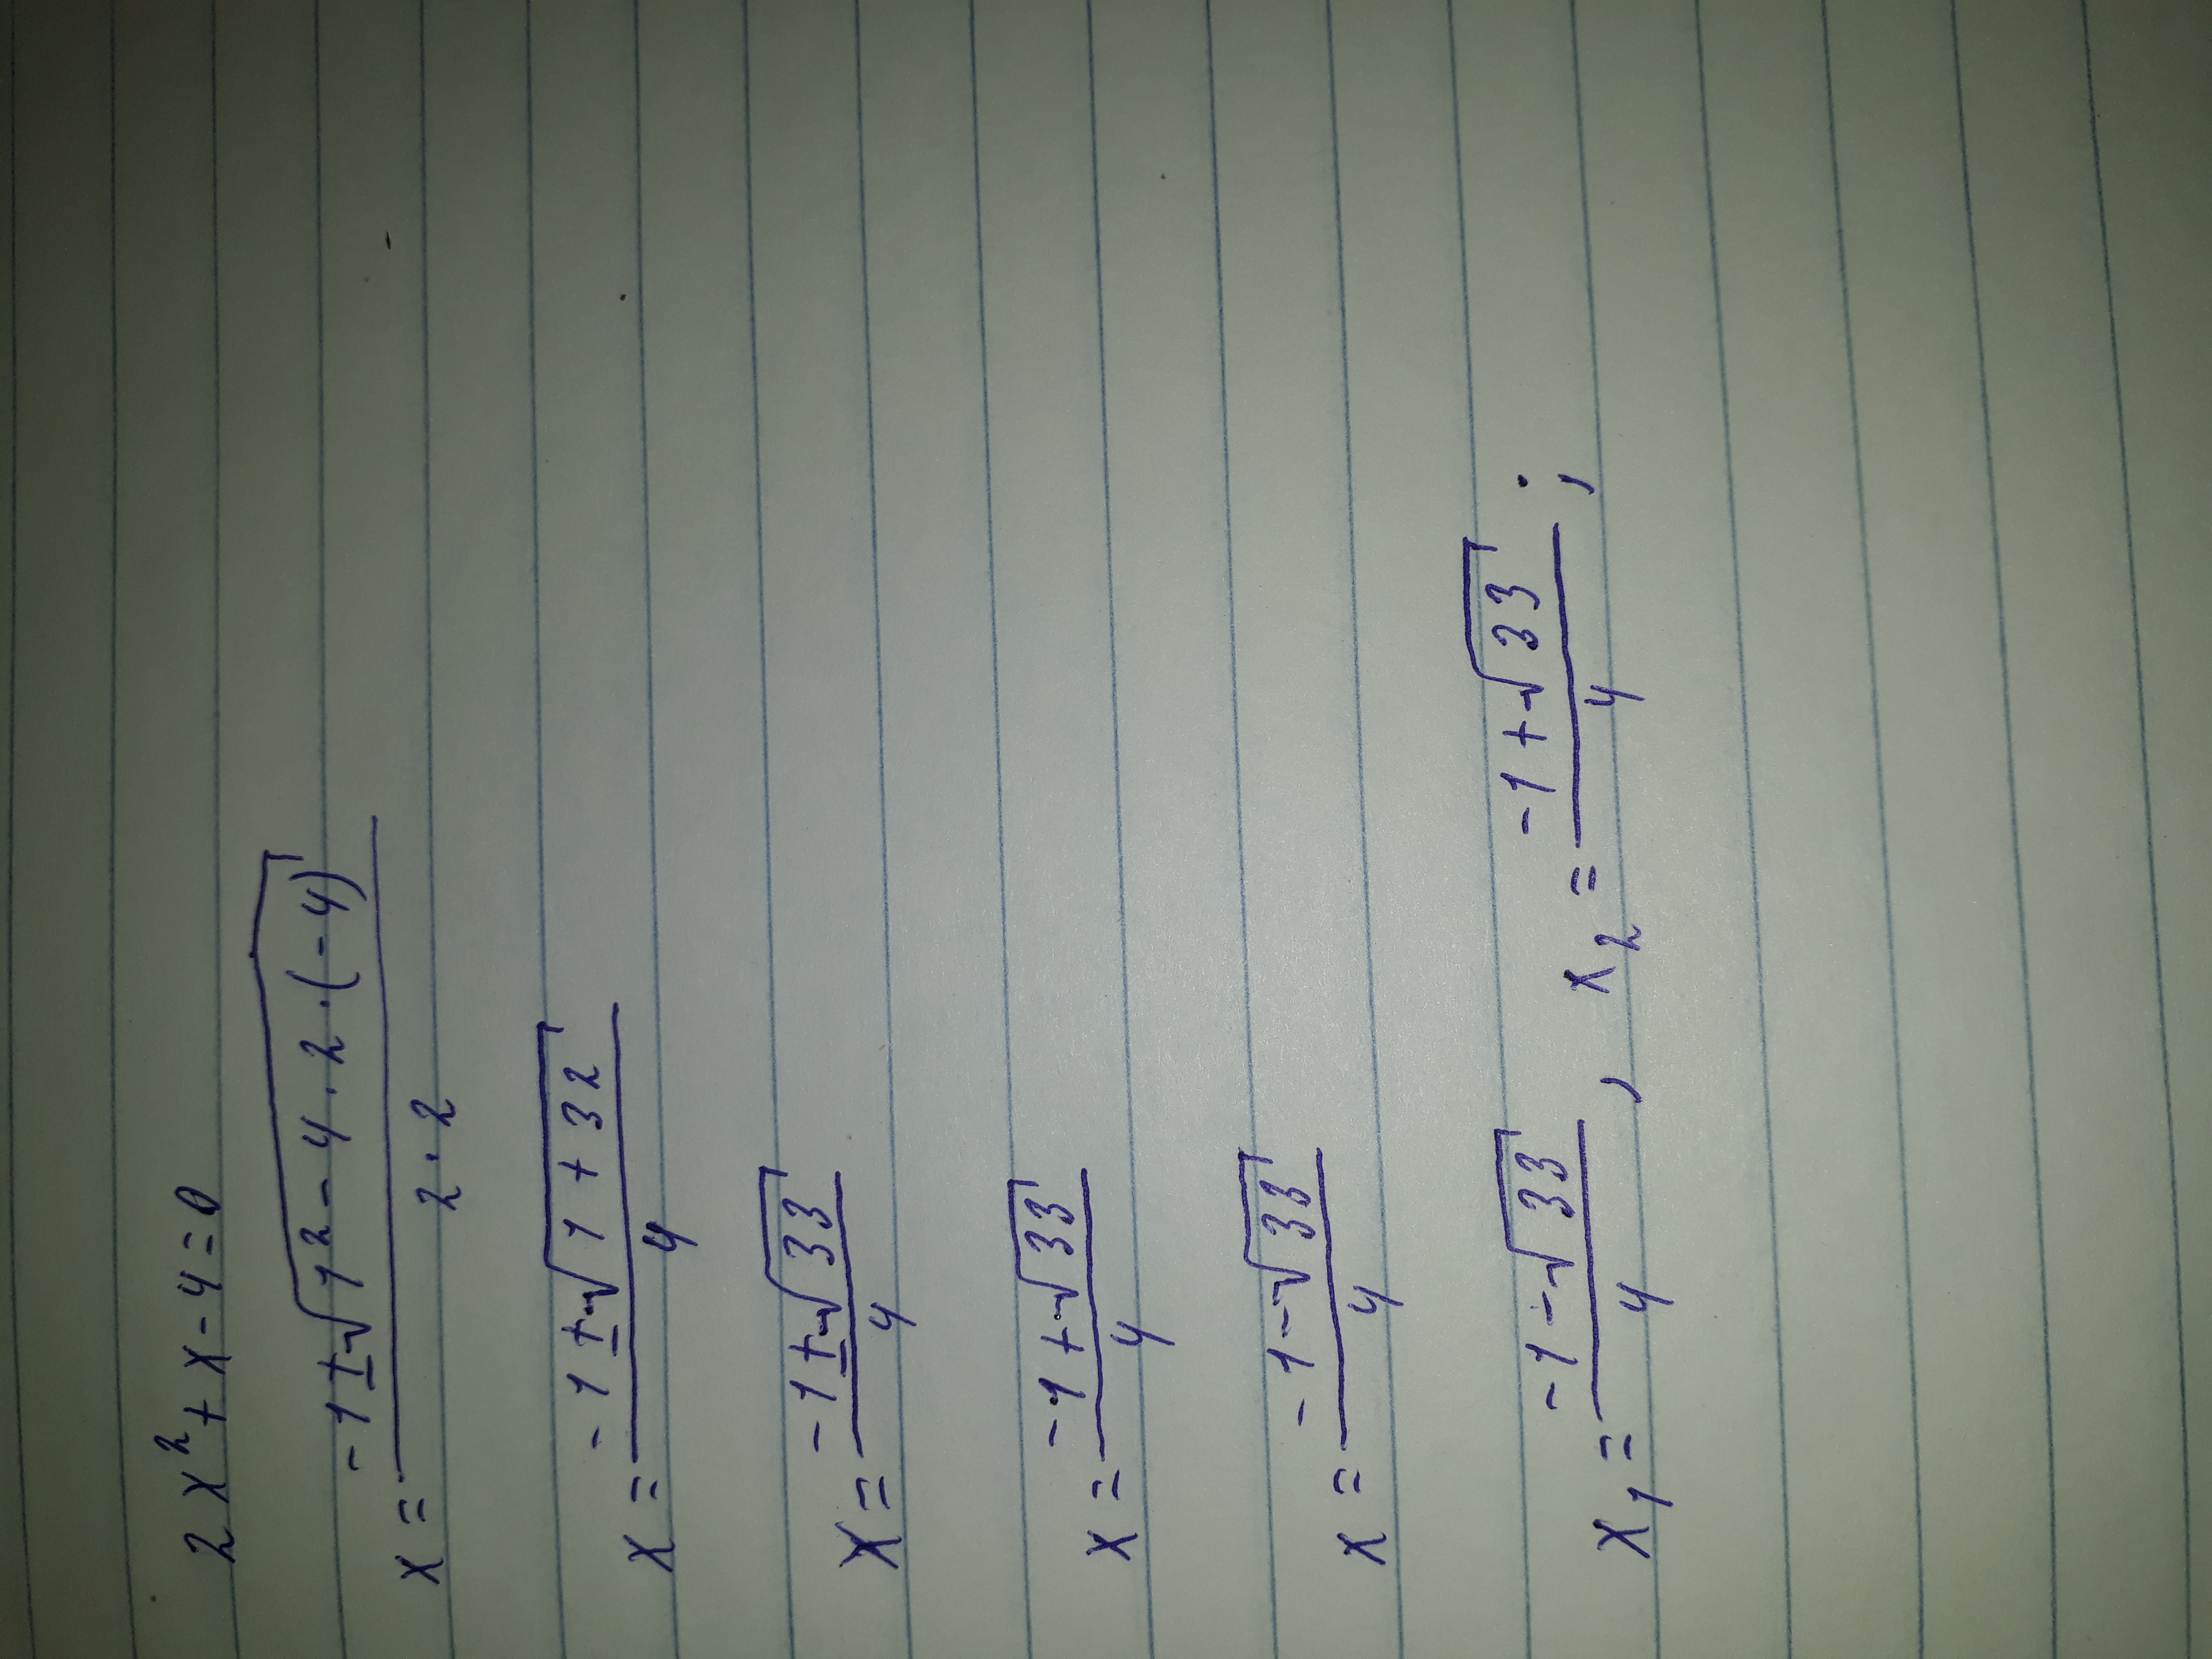 2x² + x - 4 = 0
x = (-1 ± √(1² - 4 · 2 · (-4))) / (2 · 2)
x = (-1 ± √(1 + 32)) / 4
x = (-1 ± √33) / 4
x = (-1 + √33) / 4
x = (-1 - √33) / 4
x₁ = (-1 - √33) / 4 , x₂ = (-1 + √33) / 4 ;